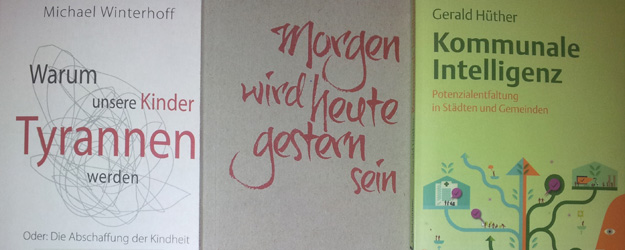 Michael Winterhoff
Warum
unsere Kinder
Tyrannen
werden
Oder: Die Abschaffung der Kindheit
morgen
wird heute
gestern
sein
Gerald Hüther
Kommunale
Intelligenz
Potenzialentfaltung
in Städten und Gemeinden